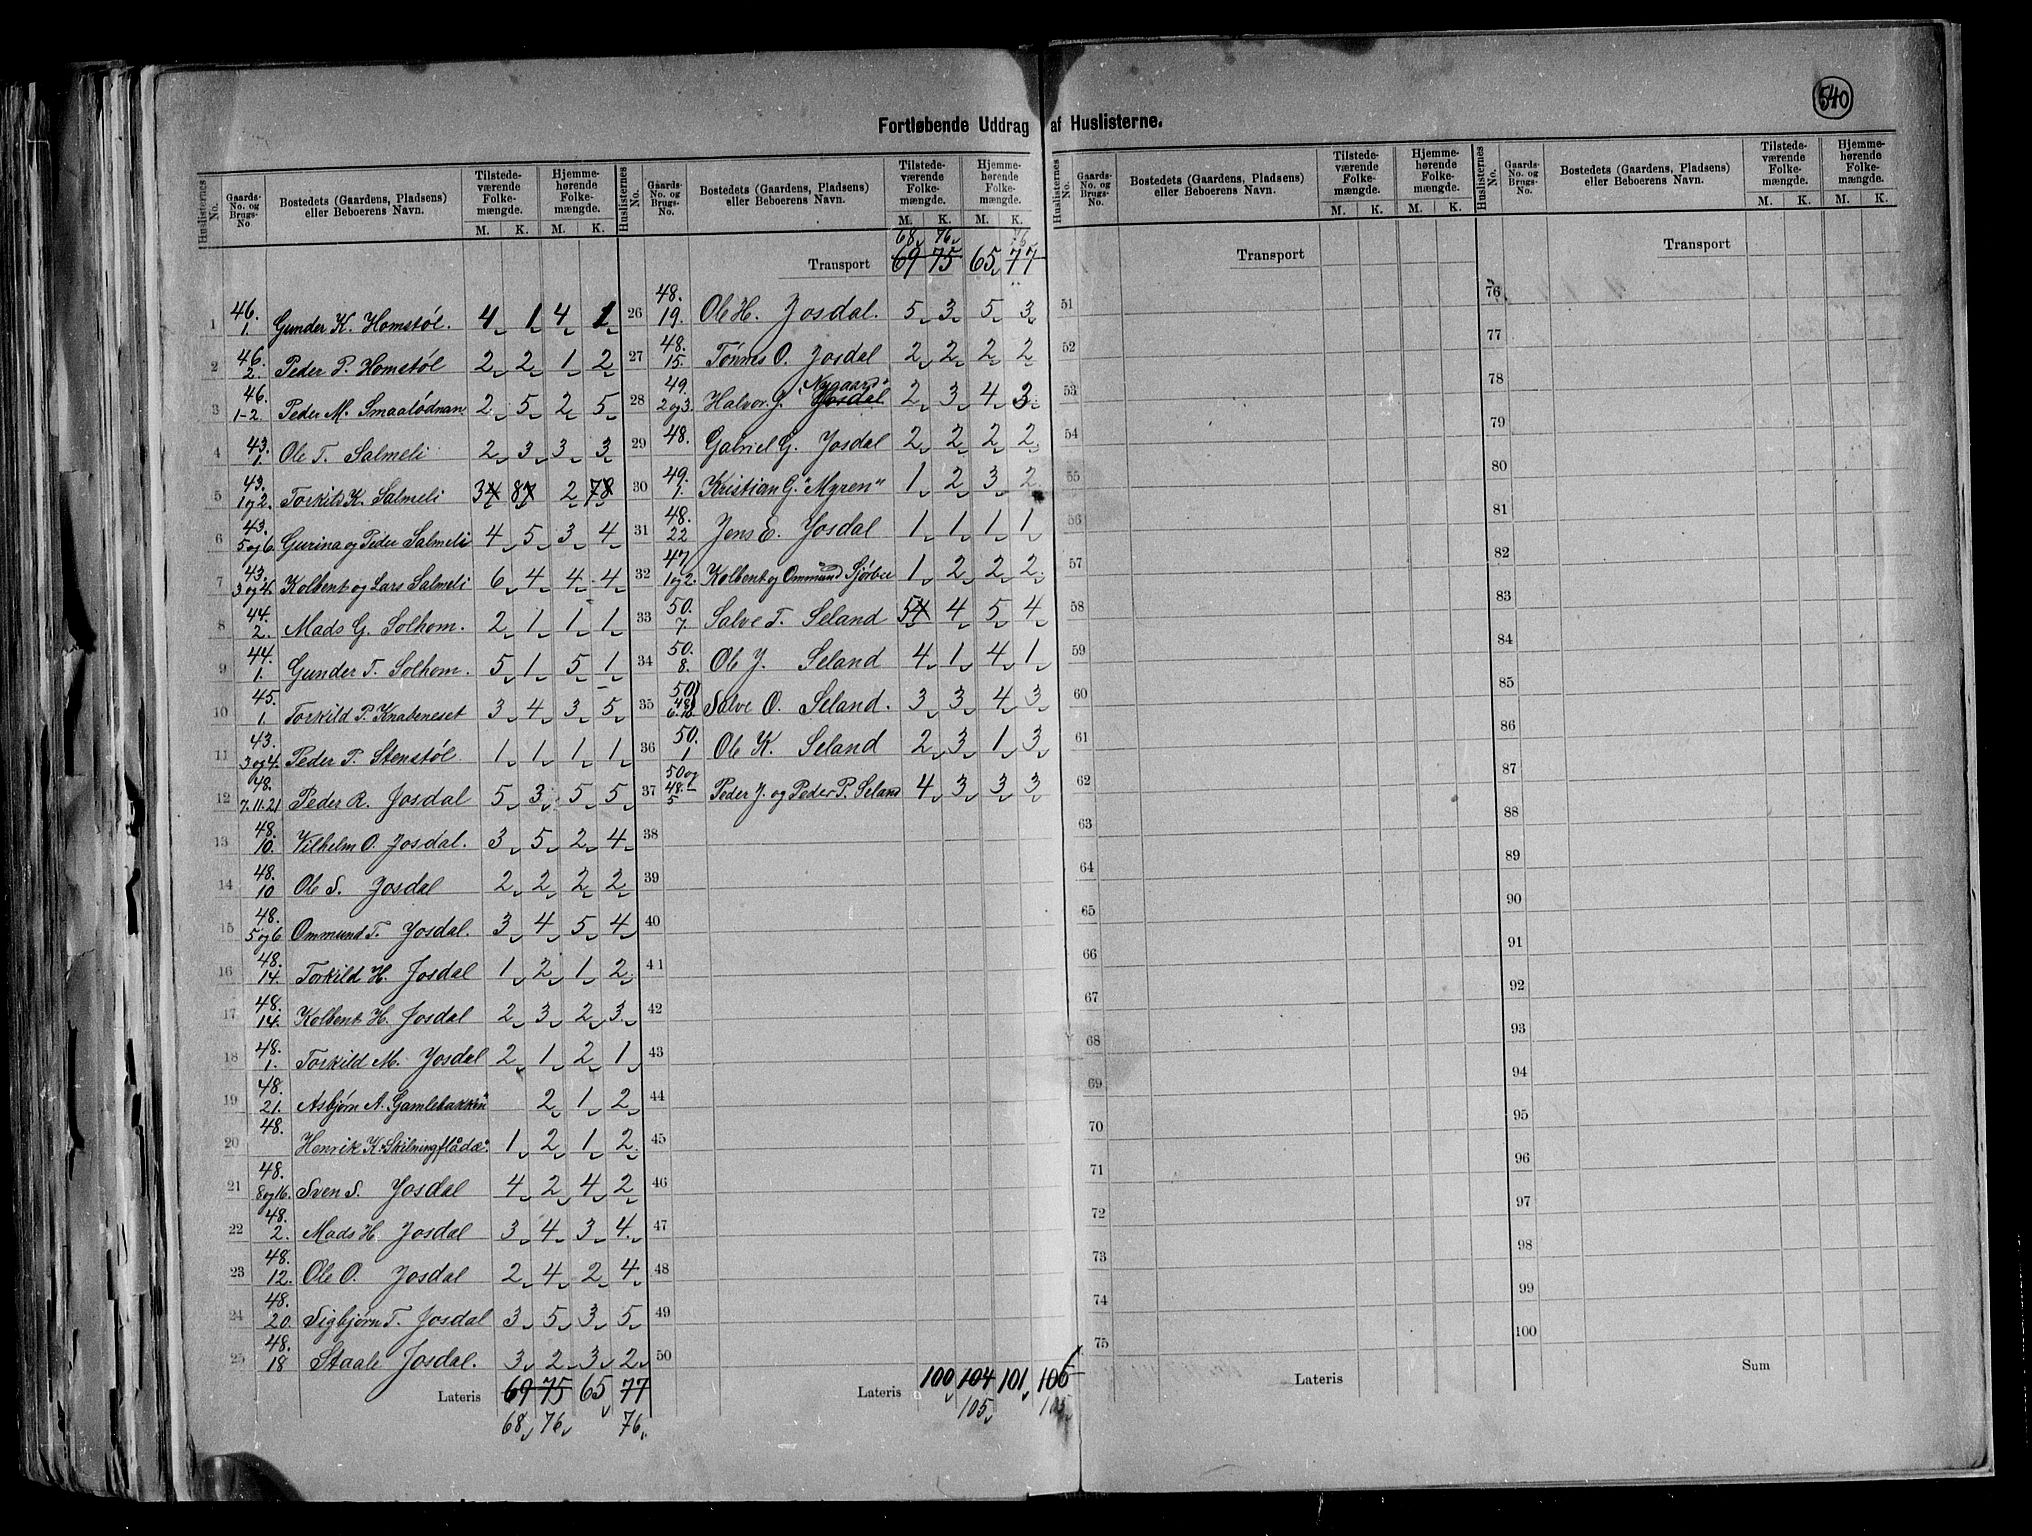 540
Fortløbende Uddrag af Huslisterne.
Huslisternes No. Gaards- No. og Brugs- No. Bostedets (Gaardens, Pladsens) eller Beboerens Navn. Tilstede- værende Folke- mængde. M. K. Hjemme- hørende Folke- mængde. M. K.
1 46. 1. Gunder K. Homstøl. 4 1 4 1
2 46. 2. Peder P. Homstøl 2 2 1 2
3 46. 1-2. Peder M. Smaalødnan 2 5 2 5
4 43. 1. Ole T. Salmeli 2 3 3 3
5 43. 1 og 2. Torkild K. Salmeli 34 87 2 78
6 43. 5 og 6. Gurina og Peder Salmeli 4 5 3 4
7 43. 3 og 4. Kolbent og Lars Salmeli 6 4 4 4
8 44. 2. Mads G. Solhom. 2 1 1 1
9 44. 1. Gunder T. Solhom. 5 1 5 1
10 45. 1 Torkild P. Knabeneset 3 4 3 5
11 43. 3 og 4. Peder T. Stenstøl 1 1 1 1
12 48. 7.11.21 Peder R. Josdal 5 3 5 5
13 48. 10. Vilhelm O. Josdal. 3 5 2 4
14 48. 10 Ole S. Josdal 2 2 2 2
15 48. 5 og 6 Ommund T. Josdal. 3 4 5 4
16 48. 14. Torkild H. Josdal 1 2 1 2
17 48. 14. Kolbent H. Josdal 2 3 2 3
18 48. 1. Torkild M. Josdal 2 1 2 1
19 48. 21. Asbjørn A. "Gamlebakken" 2 1 2
20 48. Henrik K. "Skilningsflådæ" 1 2 1 2
21 48. 8 og 16. Sven S. Josdal 4 2 4 2
22 48. 2. Mads H. Josdal 3 4 3 4
23 48. 12. Ole O. Josdal 2 4 2 4
24 48. 20. Sigbjørn T. Josdal 3 5 3 5
25 48. 18 Staale Josdal. 3 2 3 2
Lateris 69 75 65 77
68 76 76
Huslisternes No. Gaards- No. og Brugs- No. Bostedets (Gaardens, Pladsens) eller Beboerens Navn. Tilstede- værende Folke- mængde. M. K. Hjemme- hørende Folke- mængde. M. K.
68 76 76
Transport 69 75 65 77
26 48. 19. Ole H. Josdal. 5 3 5 3
27 48. 15. Tønnes O. Josdal 2 2 2 2
28 49. 2 og 3. Halvor J. Josdal "Nygaard" 2 3 4 3
29 48. Gabriel G. Josdal 2 2 2 2
30 49. 1. Kristian G. "Myren" 1 2 3 2
31 48. 22 Jens E. Josdal 1 1 1 1
32 47 1 og 2. Kolbent og Ommund Fjørbu 1 2 2 2
33 50. 7. Salve T. Seland 54 4 5 4
34 50. 8. Ole J. Seland 4 1 4 1
35 50 48 Salve O. Seland. 3 3 4 3
36 50. 1 Ole K. Seland 2 3 1 3
37 50 og 48. 5 Peder J. og Peder P. Seland 4 3 3 3
38
39
40
41
42
43
44
45
46
47
48
49
50
Lateris 100 104 101 106
105 105
Huslisternes No. Gaards- No. og Brugs- No. Bostedets (Gaardens, Pladsens) eller Beboerens Navn. Tilstede- værende Folke- mængde. M. K. Hjemme- hørende Folke- mængde. M. K.
Transport
51
52
53
54
55
56
57
58
59
60
61
62
63
64
65
66
67
68
69
70
71
72
73
74
75
Lateris
Huslisternes No. Gaards- No. og Brugs- No. Bostedets (Gaardens, Pladsens) eller Beboerens Navn. Tilstede- værende Folke- mængde. M. K. Hjemme- hørende Folke- mængde. M. K.
Transport
76
77
78
79
80
81
82
83
84
85
86
87
88
89
90
91
92
93
94
95
96
97
98
99
100
Sum